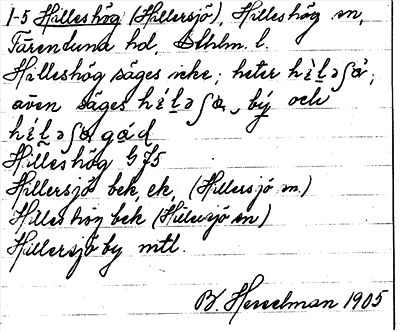 1-5 Hilleshög (Hillersjö), Hilleshög sn,
Färentuna hd, Sthlm. l.
Hilleshög säges icke; heter hìl̠əʃö̀;
även säges hílə̠ʃö, bý och
hílə̠ʃö gɑ́d
Hilleshög G J5
Hillersjö bek. ek. (Hillersjö sn.)
Hilleshög bek (Hillersjö sn)
Hillersjö by mtl.
B. Hesselman 1905